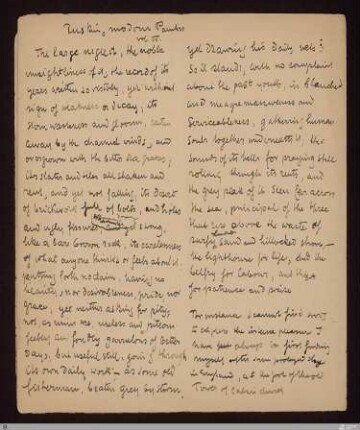 Ruskin, modern Painters
vol. IV
The large neglect, the noble
unsightliness of it, the record of its
years written so visibly, yet without
sign of weakness or decay, its
stern wasteness and gloom, eaten
away by the channel winds, and
overgrown with the bitter sea grasses;
its slates and tiles all shaken and
rent, and yet not falling, its desert
of brickwork full of bolts, and holes
and ugly fissures, and yet strong,
like a bare brown rock, its carelessness
of what anyone thinks or feels about it,
putting forth no claim, having no
beauty, nor desirableness, pride nor
grace, yet neither asking for pity,
not, as ruins are, useless and piteous
feebly or fondly garrulous of better
days, but useful still, going through
its own daily work — as some old
fisherman, beaten grey by storm,
yet drawing his daily nets:
So it stands, with no complaint
about the past youth, in blanched
and meagre massiveness and
Serviceableness, gathering human
souls together underneath it, the
sound of its bells for praying still
rolling through its rents, and
the grey peak of it seen far across
the sea, principal of the three
that rise above the waste of
surfy sand and hillocked shore, —
the lighthouse for life, and the
belfry for labour, and this
for patience and praise
I cannot find words
to express the intense pleasure I
have always in first finding
myself after some prolonged stay
in England, at the foot of the old
Tower of Calais church